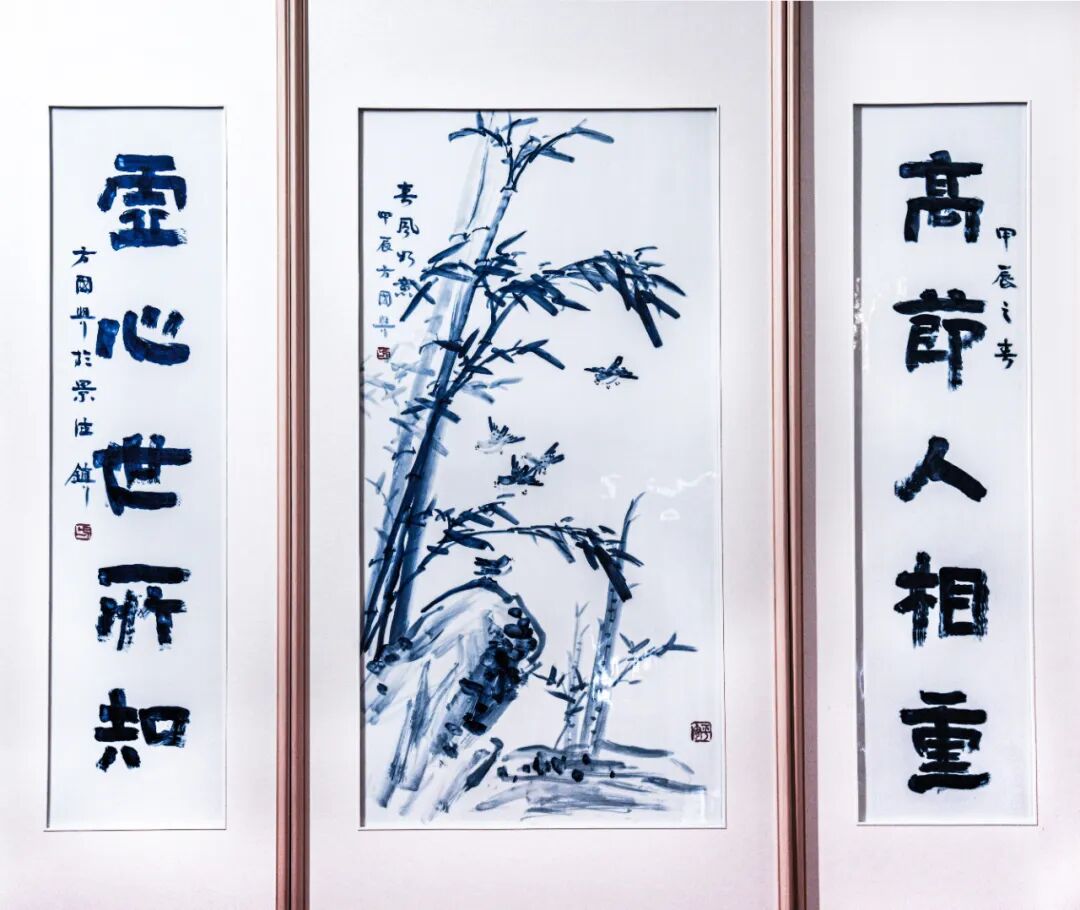 甲辰之春
高節人相重
春風
甲辰方國
虛心世所知
方國於景德鎮